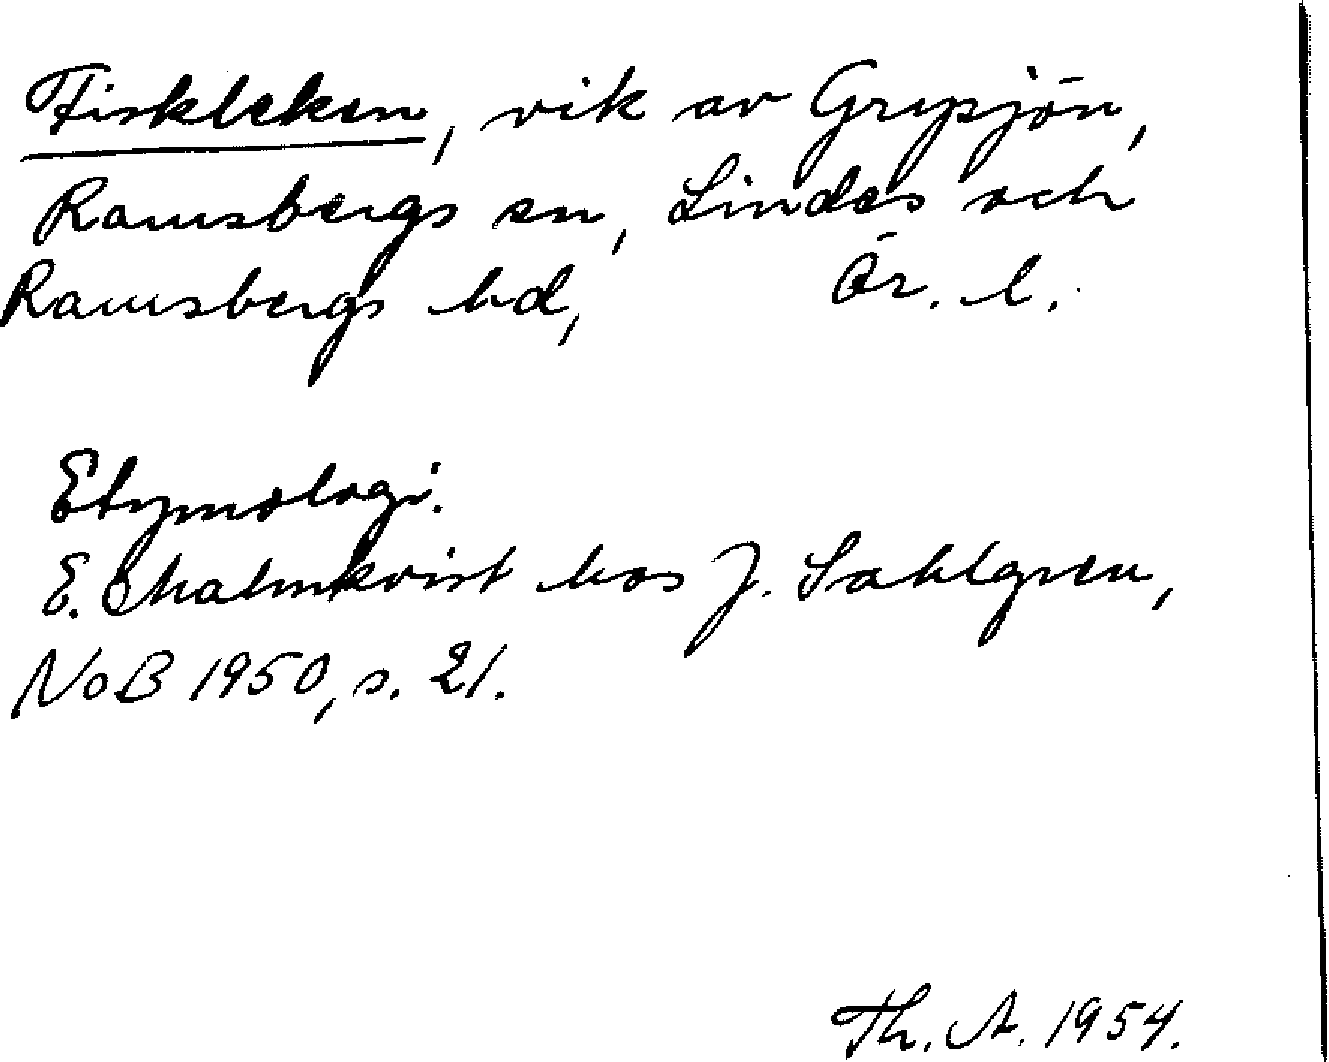 Fiskleken, vik av Gripsjön,
Ramsbergs sn, Lindes och
Ramsbergs hd, Ör. l.
Etymologi.
E. Malmkvist hos J. Sahlgren,
NoB 1950, s. 21.
Th. A. 1954.